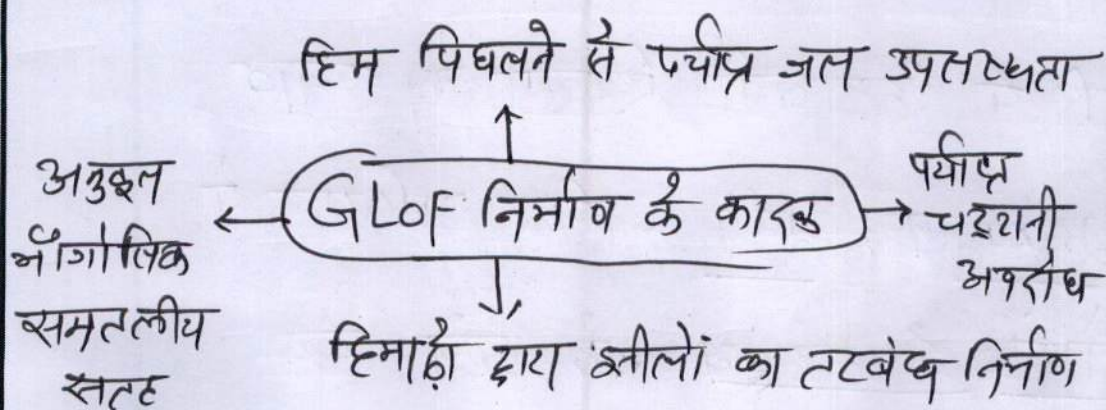 हिम पिघलने से पर्याप्त जल उपलब्धता
अनुकूल
भौगोलिक
समतलीय
सतह
GLOF निर्माण के कारक
पर्याप्त
चट्टानी
अवरोध
हिमोढ़ों द्वारा झीलों का तटबंध निर्माण